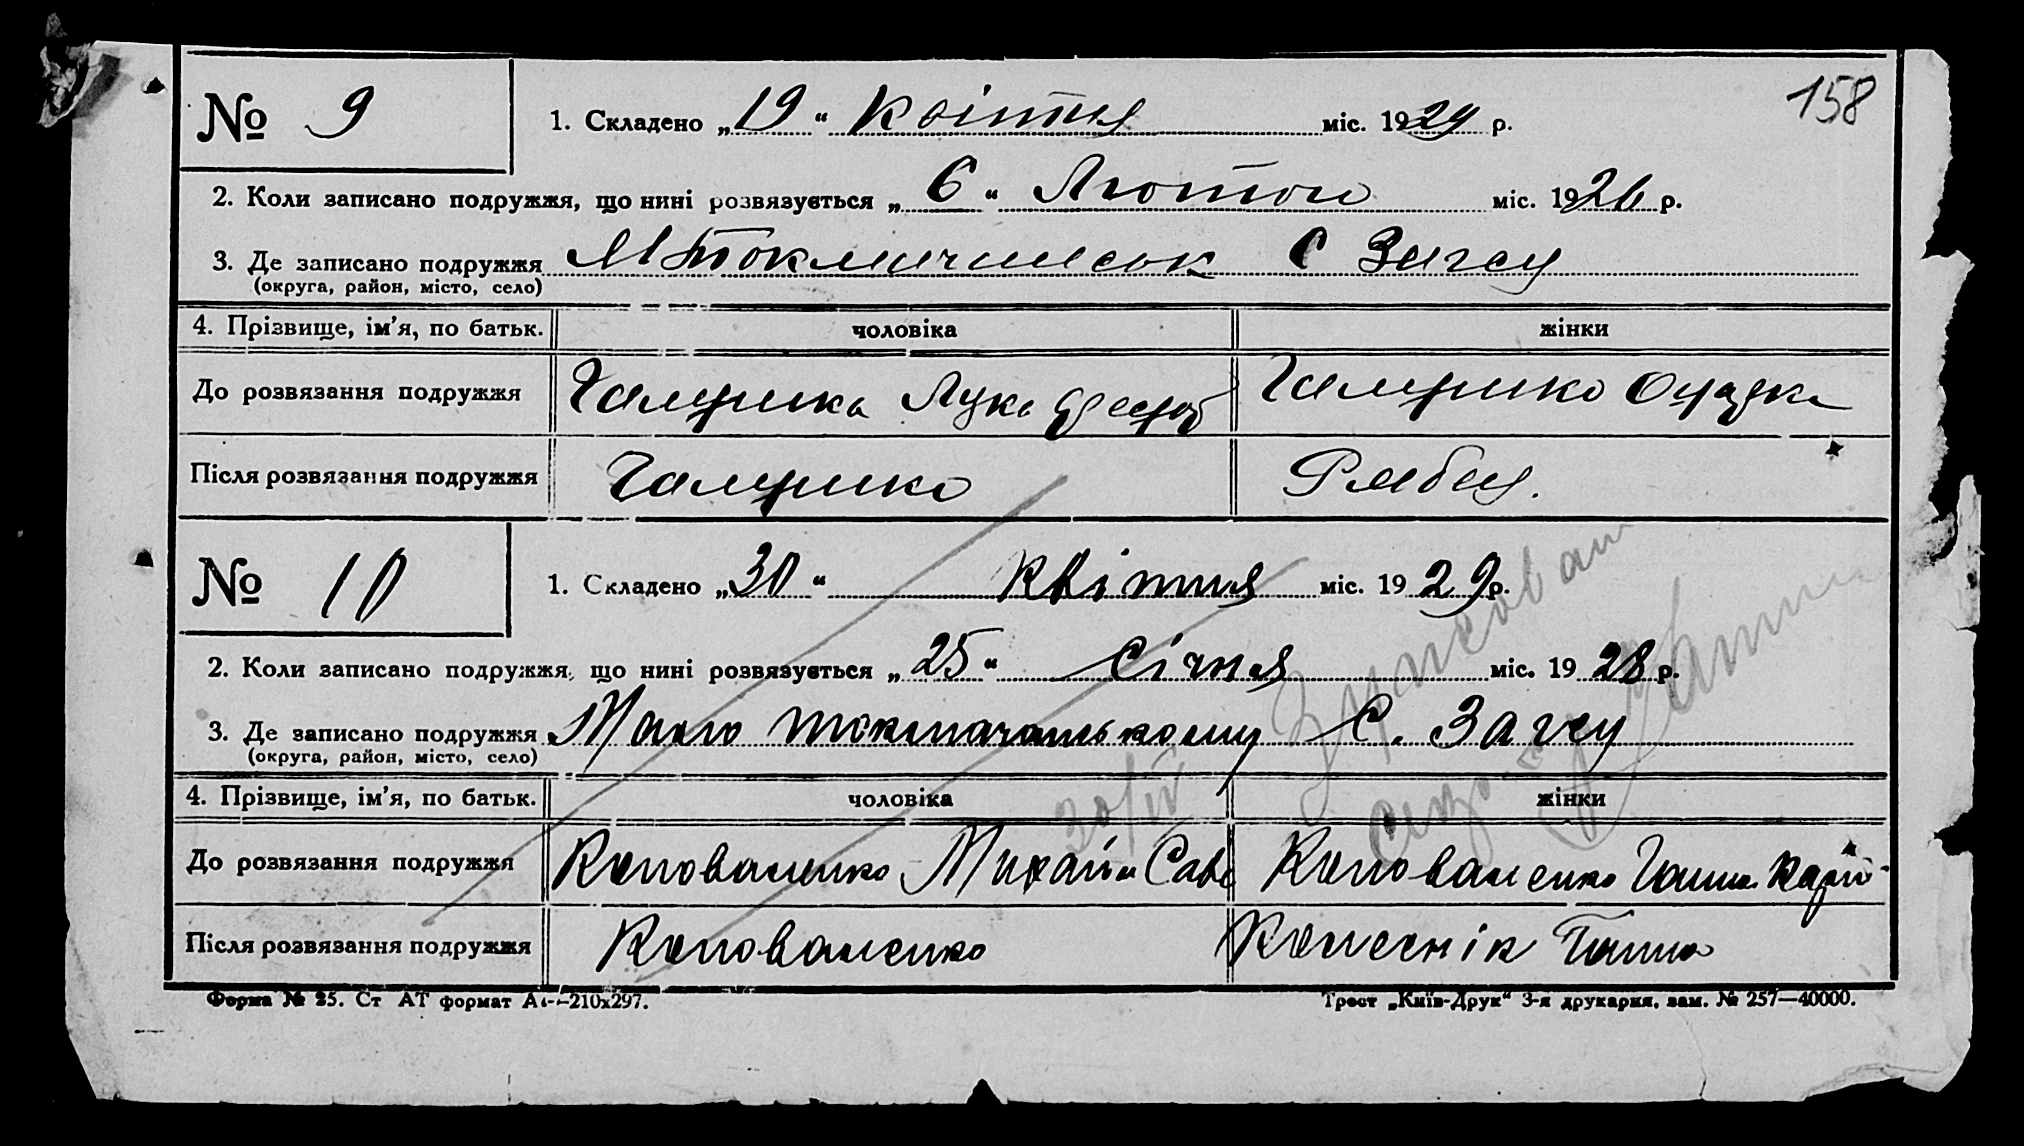 158
№ 9
1. Складено „19“ Квітня міс. 1929 р.
2. Коли записано подружжя, що нині розвязується „6“ Лютого міс. 1926 р.
3. Де записано подружжя С Загсу
(округа, район, місто, село)
4. Прізвище, ім’я, по батьк. чоловіка жінки
До розвязання подружжя Лука
Після розвязання подружжя Рябец.
№ 10
1. Складено „30“ Квітня міс. 1929 р.
2. Коли записано подружжя, що нині розвязується „25“ Січня міс. 1928 р.
3. Де записано подружжя С. Загсу
(округа, район, місто, село)
30/IV
4. Прізвище, ім’я, по батьк. чоловіка жінки
До розвязання подружжя Коноваленко Михайл Сав Коноваленко Ганна
Після розвязання подружжя Коноваленко Колеснік Ганна
Форма № 25. Ст АТ формат А4—210х297. Трест „Київ-Друк“ 3-я друкарня, зам. № 257—40000.